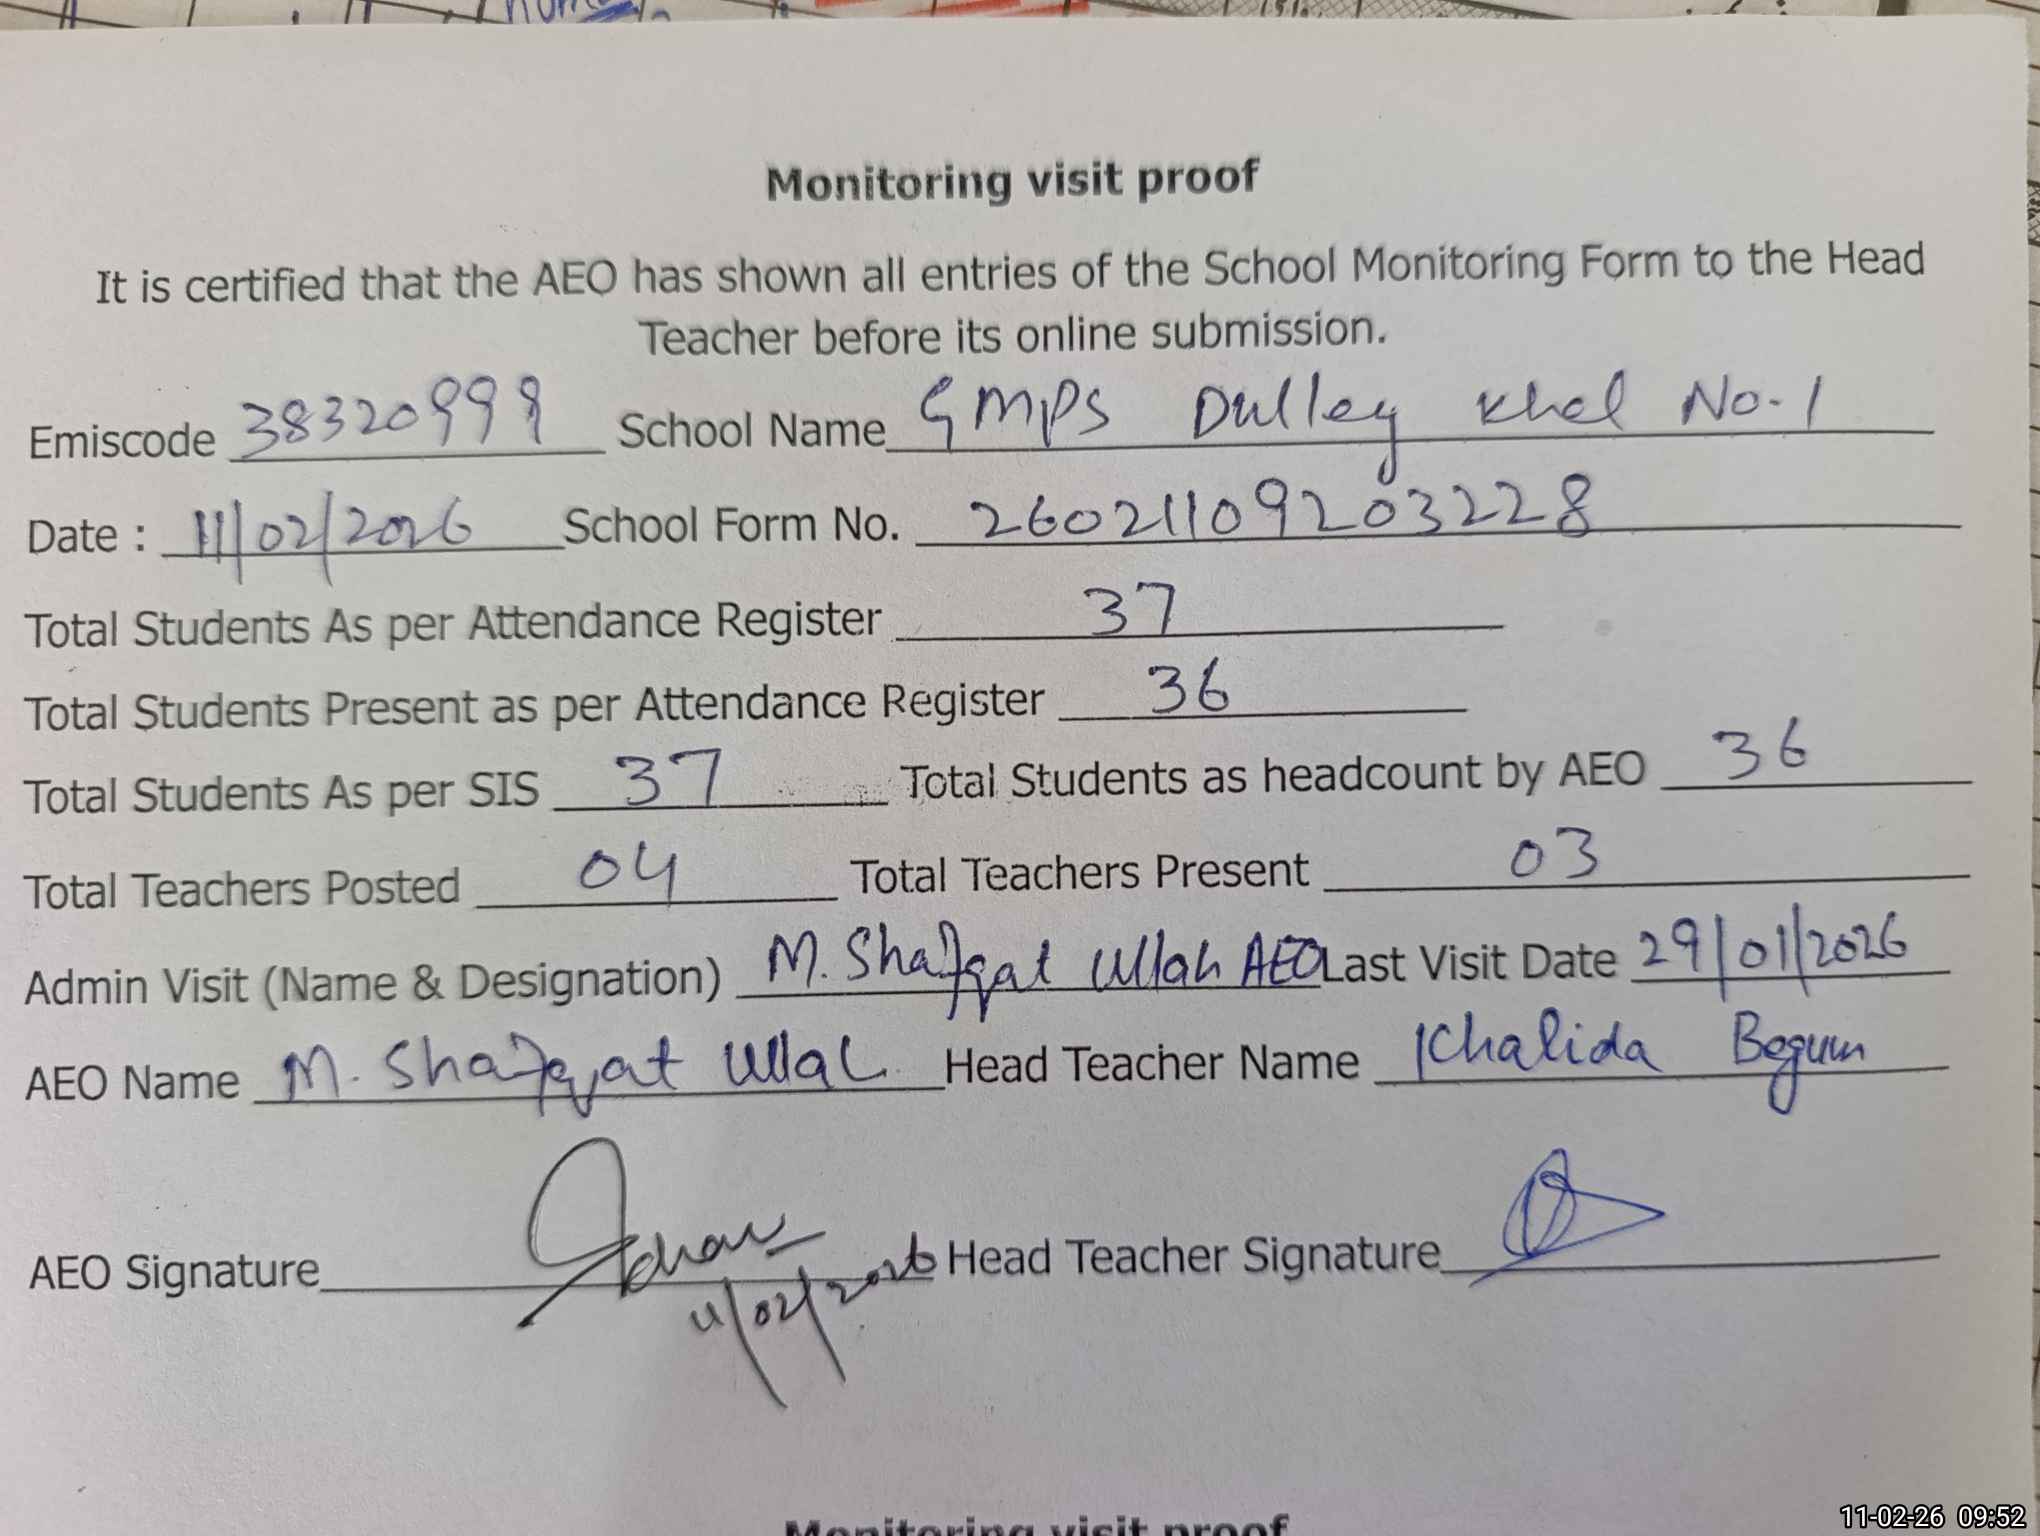 Monitoring visit proof
It is certified that the AEO has shown all entries of the School Monitoring Form to the Head
Teacher before its online submission.
Emiscode 38320999 School Name GMPS Dulley Khel No.1
Date : 11/02/2026 School Form No. 26021109203228
Total Students As per Attendance Register 37
Total Students Present as per Attendance Register 36
Total Students As per SIS 37 Total Students as headcount by AEO 36
Total Teachers Posted 04 Total Teachers Present 03
Admin Visit (Name & Designation) M. Shafqat Ullah AEO Last Visit Date 29/01/2026
AEO Name M. Shafqat Ullah Head Teacher Name Khalida Begum
AEO Signature Head Teacher Signature
11/02/2026
Monitoring visit proof
11-02-26 09:52